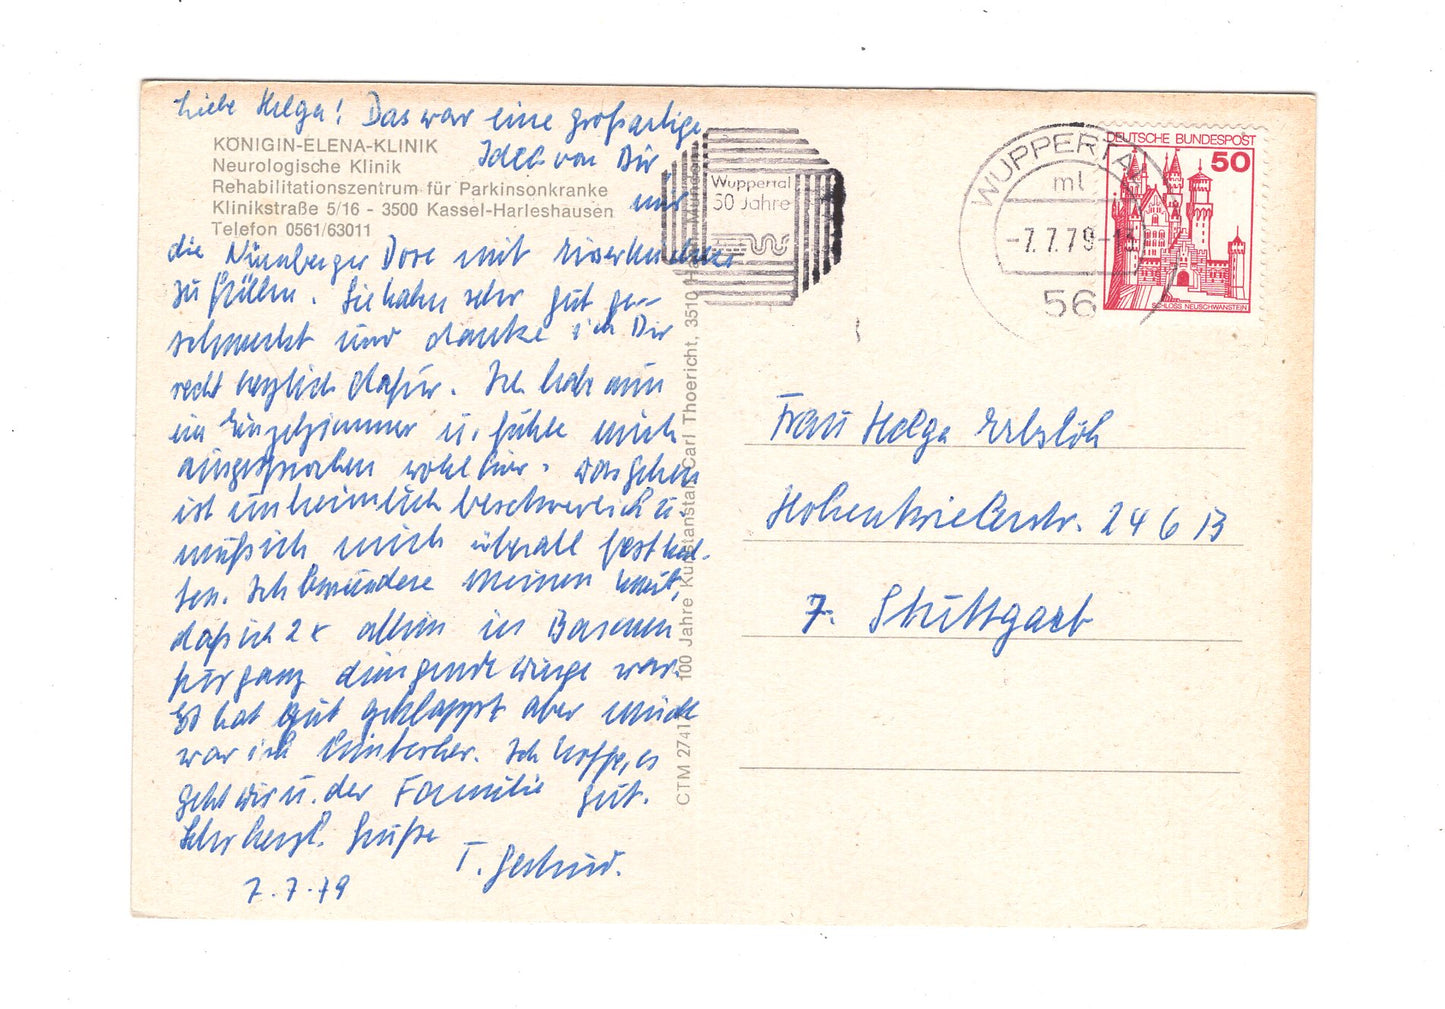 Liebe Helga! Das war eine großartige
Idee von Dir,
mir
die Nürnberger Dose mit
zu füllen. Sie haben sehr gut ge-
schmeckt und danke ich Dir
recht herzlich dafür. Ich habe nun
ein Einzelzimmer u. fühle mich
ausgesprochen wohl hier. Das Gehen
ist unheimlich beschwerlich u.
muß ich mich überall festhal-
ten. Ich bewundere meinen Mut,
daß ich 2x allein in Barmen
war.
Es hat gut geklappt aber müde
war ich hinterher. Ich hoffe, es
geht Dir u. der Familie gut.
Sehr herzl. Grüße
T. Gertrud.
7.7.79
KÖNIGIN-ELENA-KLINIK
Neurologische Klinik
Rehabilitationszentrum für Parkinsonkranke
Klinikstraße 5/16 - 3500 Kassel-Harleshausen
Telefon 0561/63011
CTM 2741 100 Jahre Kunstanstalt Carl Thoericht, 3510 Hann. Münden
Wuppertal
50 Jahre
WUPPERTAL
ml
-7.7.79-
56
DEUTSCHE BUNDESPOST
50
SCHLOSS NEUSCHWANSTEIN
Frau Helga Erbslöh
Hohentwielerstr. 246 B
7. Stuttgart